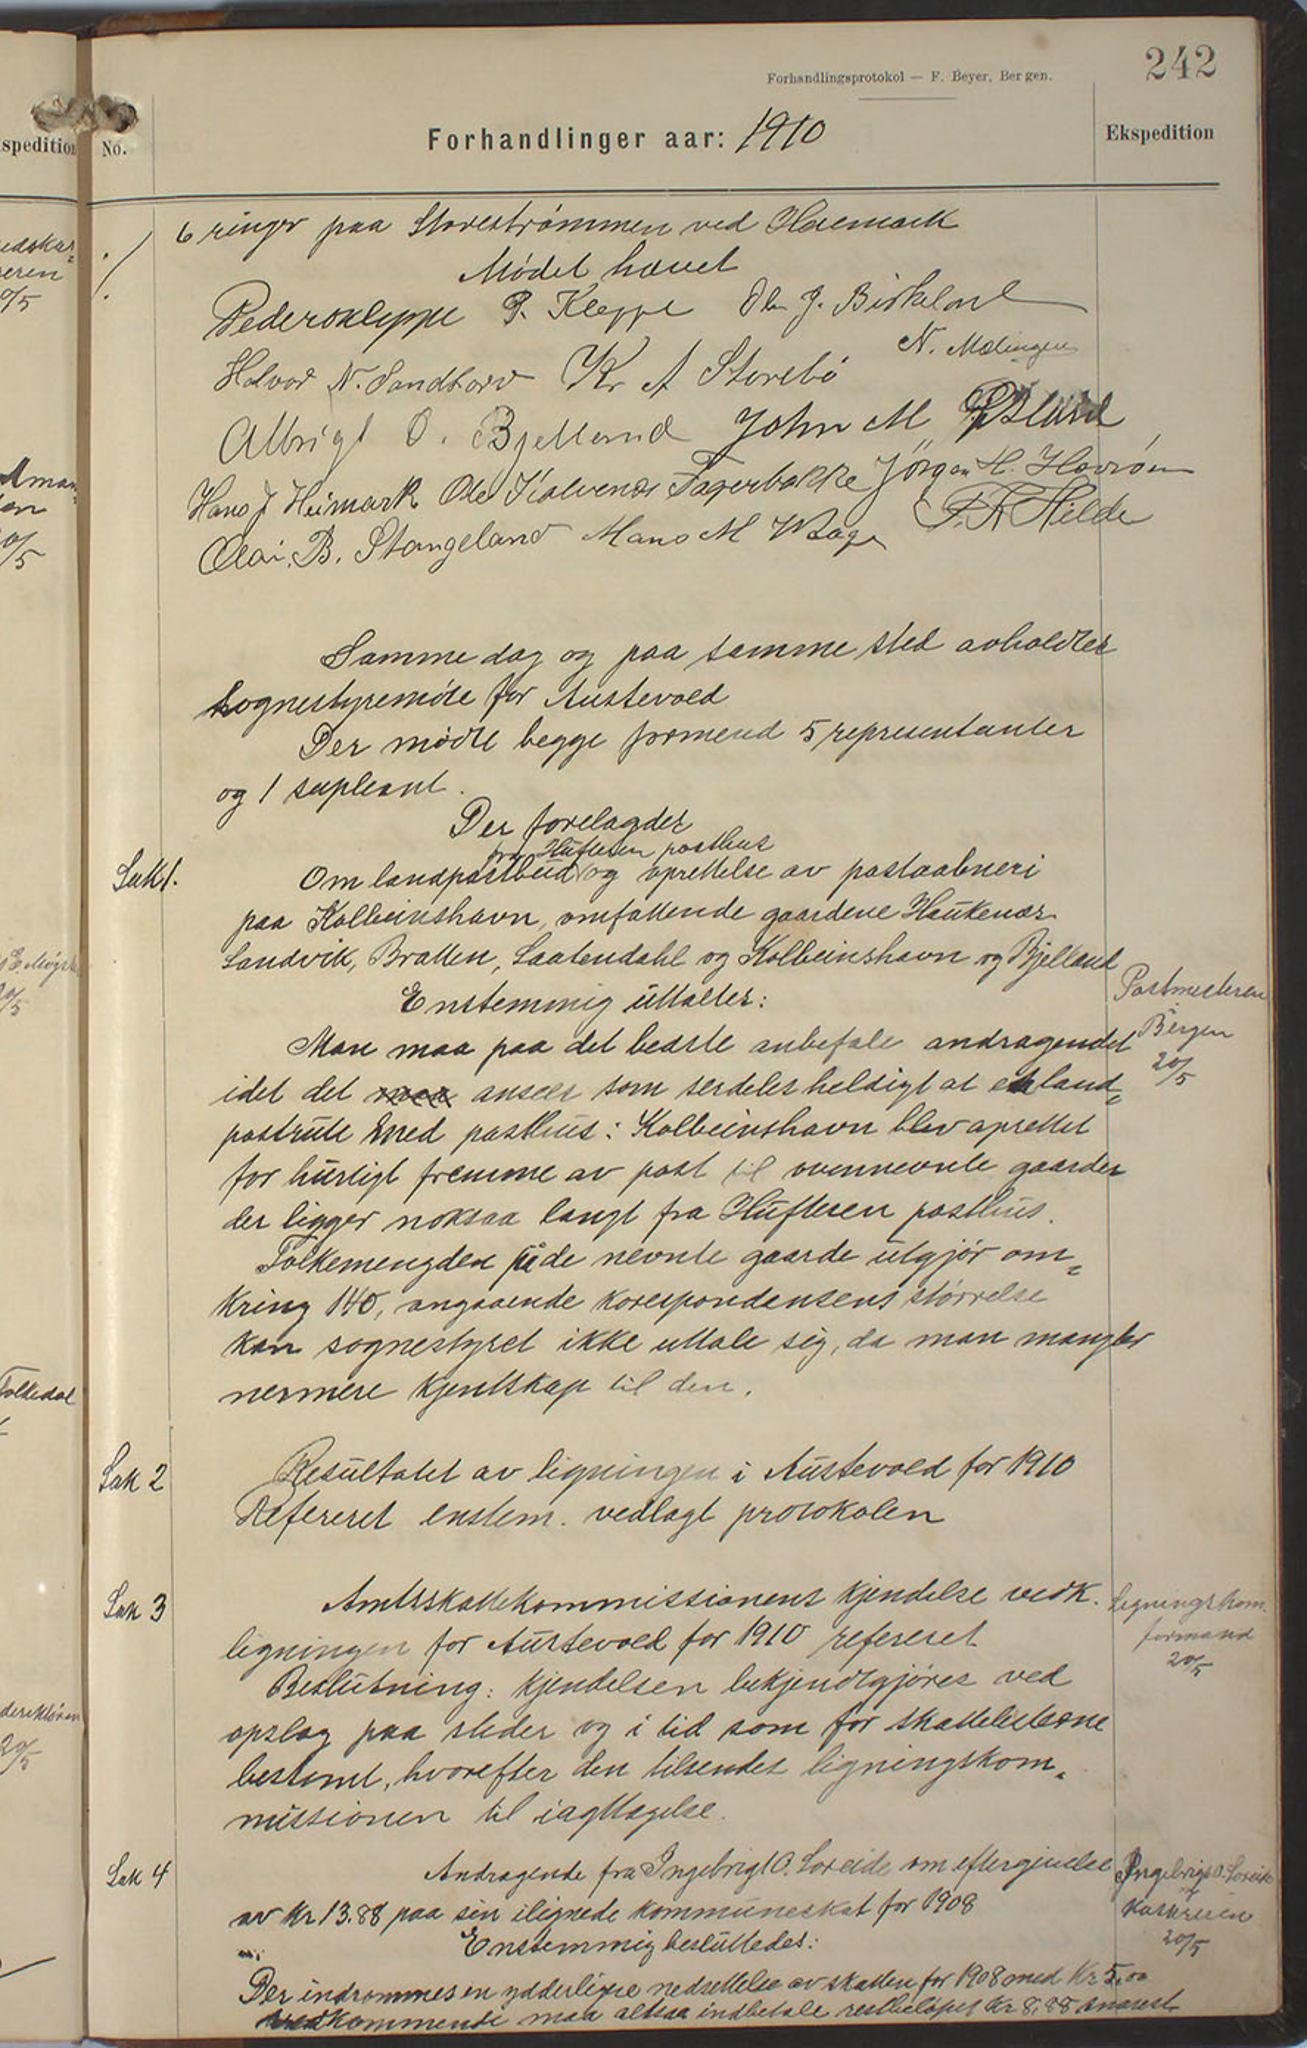 242
Forhandlingsprotokol — F. Beyer, Bergen.
Forhandlinger aar: 1910
Ekspedition
spedition
No.
6 ringer paa Storestrømmen ved Heemark
Mødet hævet
Peder Kleppe P. Kleppe Ole J. Birkeland
N. Mælingen
Halvor N. Sandtorv Kr A Storebø
Albrigt O. Bjelland John M
Hans J Heimark Ole Kalvenes Fagerbakke Jørgen H. Horrøen
Olai. B. Stangeland Mans M Waage F. K Hilde
Samme dag og paa samme sted avholdtes
sognestyremøte for Austevold
Der mødte begge formend 5 representanter
og 1 supleant.
Der forelagdes
fra Hufteren posthus
Sak 1.
Om landpostbud og oprettelse av postaabneri
paa Kolbeinshavn, omfattende gaardene Haukenæs
Sandvik, Bratten, Laatendahl og Kolbeinshavn og Bjelland
Enstemmig uttaltes:
Postmesteren
Bergen
20/5
Man maa paa det bedste anbefale andragendet
idet det maa ansees som serdeles heldigt at en land-
postrute med posthus i Kolbeinshavn blev oprettet
for hurtigt fremme av post til ovennevnte gaarder
der ligger noksaa langt fra Hufteren posthus.
Folkemengden på de nevnte gaarde utgjør om-
kring 140, angaaende korespondansens størrelse
kan sognestyret ikke uttale sig, da man mangler
nermere kjentskap til den.
Sak 2
Resultatet av ligningen i Austevold for 1910
Refereret enstem. vedlagt protokolen
Sak 3
Amtsskattekommissionens kjendelse vedk.
ligningen for Austevold for 1910 refereret
Ligningskom.
formand
20/5
Beslutning: Kjendelsen bekjendtgjøres ved
opslag paa steder og i tid som for skattelisterne
bestemt, hvorefter den tilsendes ligningskom-
missionen til iagttagelse.
Sak 4
Andragende fra Ingebrigt O. Loreide om eftergivelse
av Kr 13.88 paa sin ilignede kommuneskat for 1908
Ingebrigt O. Loreide
Kasereren
20/5
Enstemmig besluttedes:
Der indrømmes en ydderligere nedsettelse av skatten for 1908 med Kr 5,00
vedkommende maa altsaa indbetale restbeløpet Kr 8.88 snarest